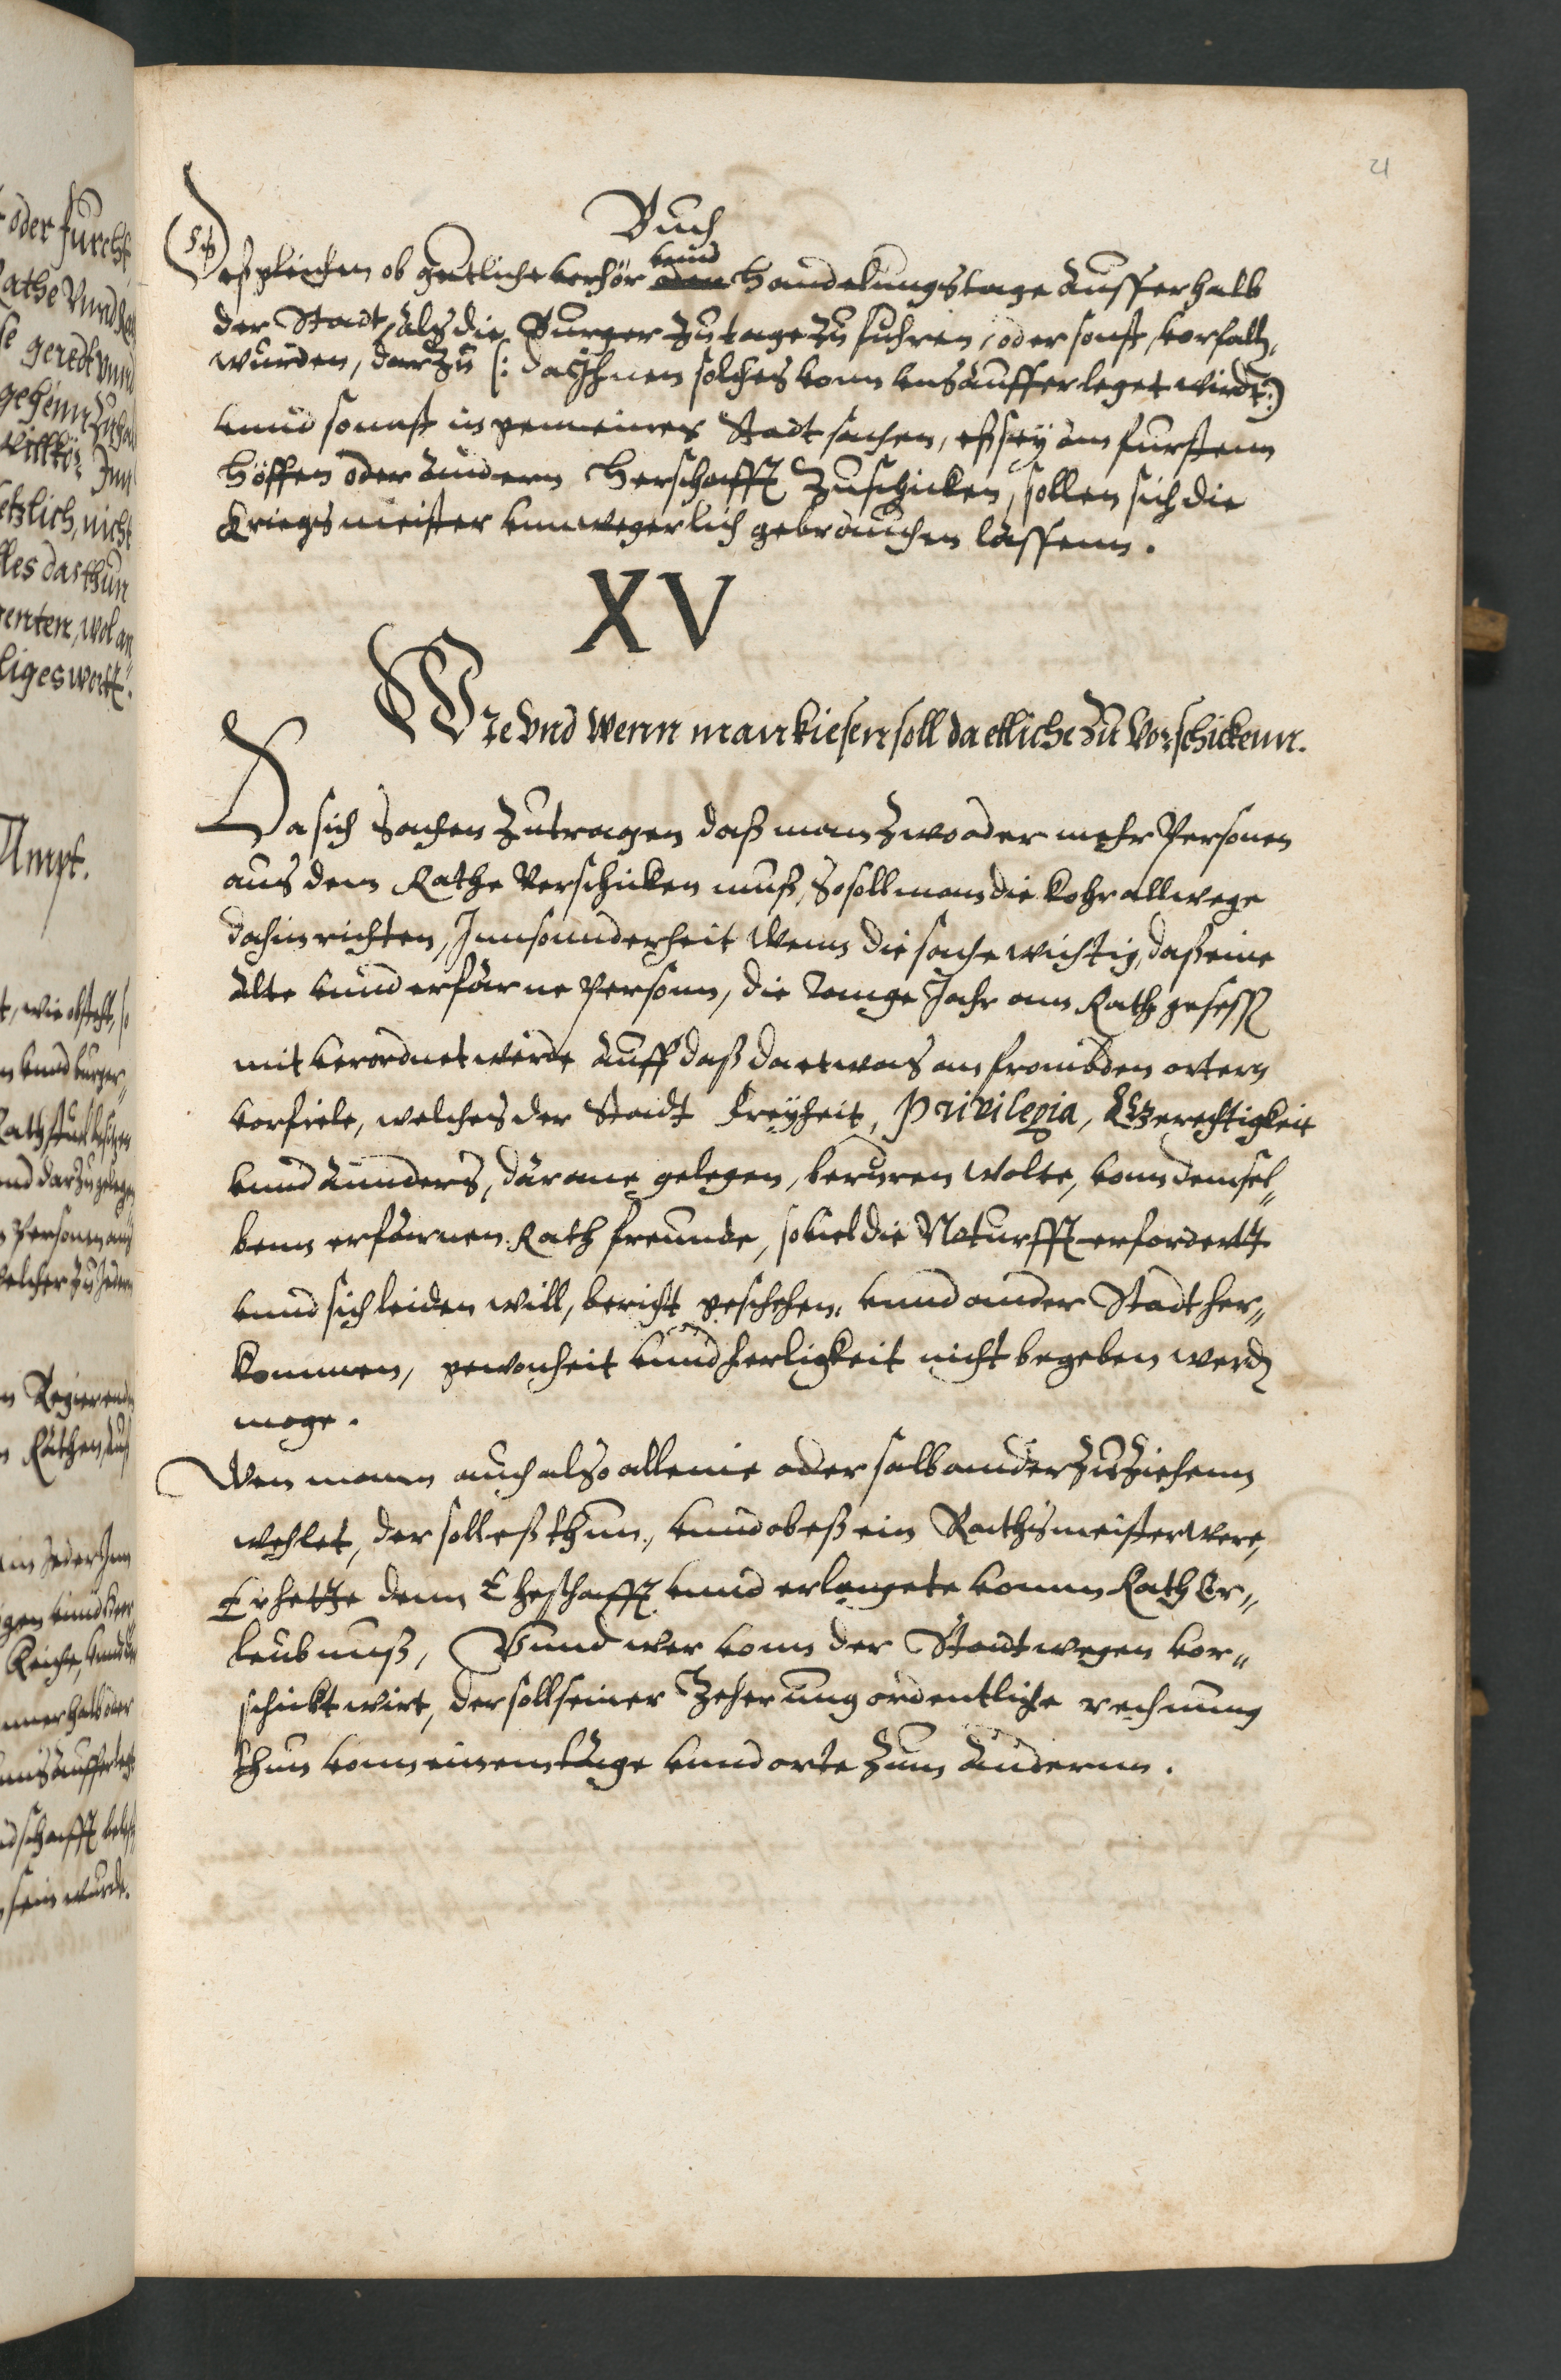 21
Buch
Deßgleichen ob guetliche verhör vnnd oder Handelungstage ausserhalb
der Stadt, als die Burger zu tage zu fuhren, oder sonst, vorfalln
wurden, darzu (: da Ihnen solches vonn vns aufferleget wirdt :)
vnnd sonnst in gemeiner Stadt sachen, eß sey am furstenn
höffen oder andern Herschafft zuschicken, sollen sich die
Kriegsmeister vnnwegerlich gebrauchen lassenn.
XV
Wie vnd wenn man kiesen soll da etliche zu vorschickenn.
Da sich Sachen zutragen daß man zwo oder mehr Personen
aus dem Rathe verschicken muß, So soll man die kohr allwege
dahin richten, Innsonnderheit wenn die sache wichtig, daß eine
alte vnnd erfarne Person, die lange Jahr am Rath gesessn
mit verordnet werde auff daß da etwas an frömbden ortern
vorfiele, welches der Stadt Freyheit, Privilegia, Gerechtigkeit
vnnd annders, darane gelegen, beruren wolte, vonn demsel„
benn erfarnen Rathfreunde, so viel die Noturfft erfordertt
vnnd sich leiden will, bericht geschehen, vnnd an der Stadt her„
kommen, gewonheit vnnd herligkeit nicht begeben werdn
moge.
Wen mann auch also alleine oder selb ander zu ziehenn
wehlet, der soll eß thun, vnnd ob eß ein Rathsmeister were,
Er hette denn Ehehafft vnnd erlangete vonn Rath Er„
leubnuß, Vnnd wer vonn der Stadt wegen vor„
schickt wirt, der soll seiner Zeherung ordentliche rechnung
thun vonn einem tage vnnd orte zum anderenn.